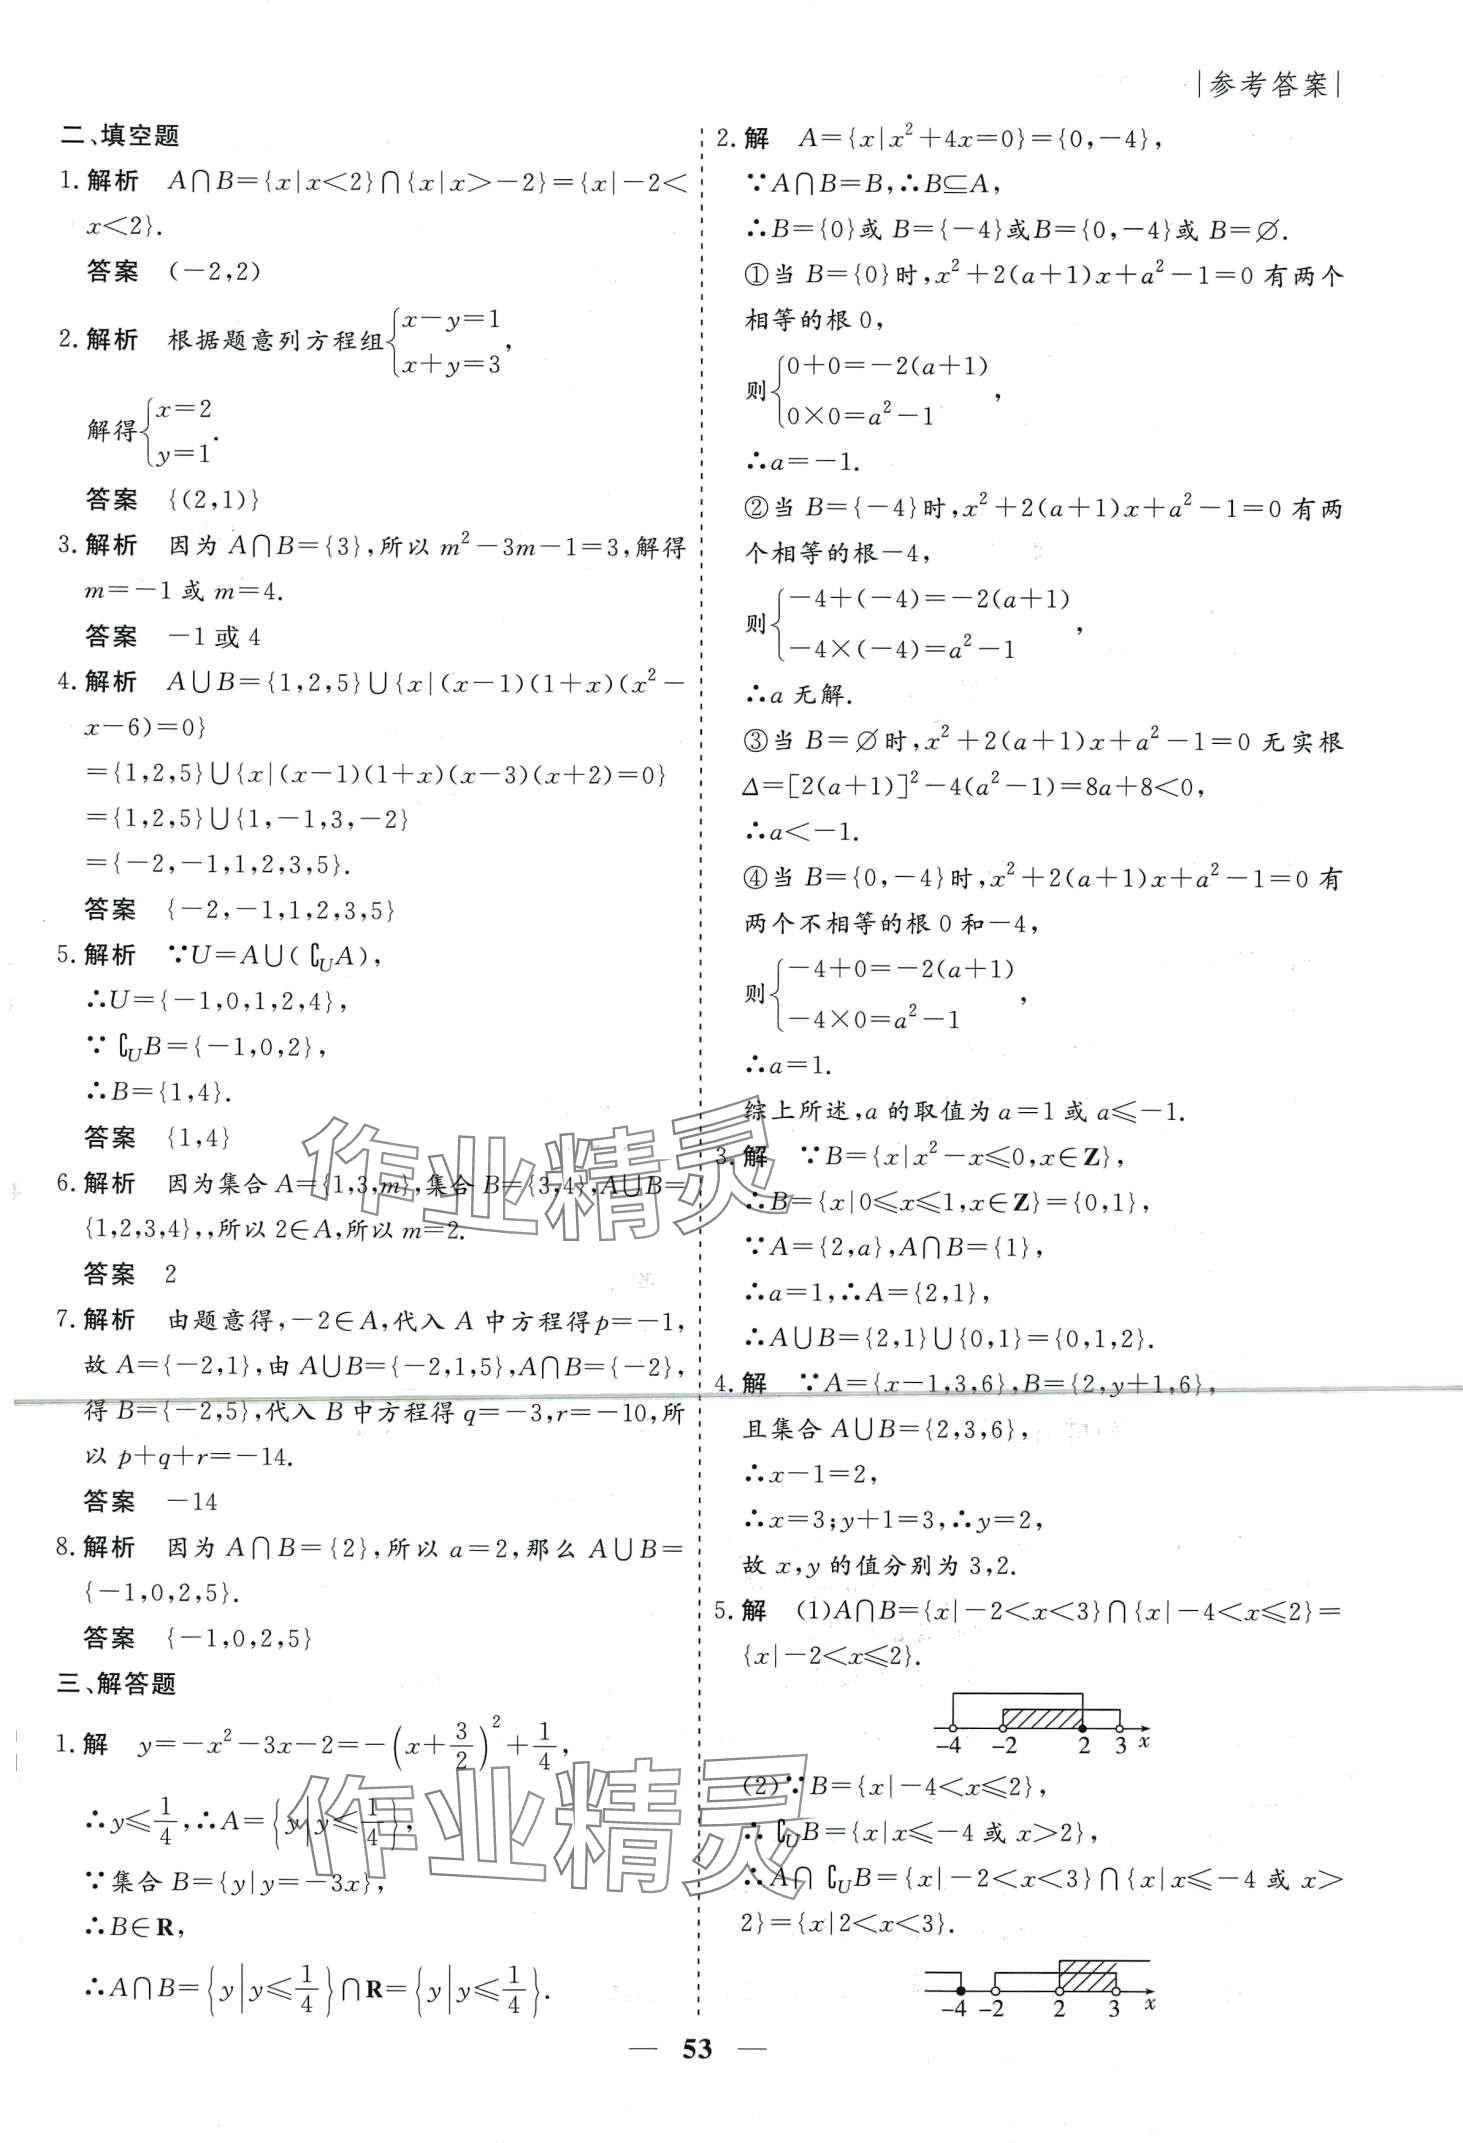 |参考答案|
二、填空题
1. 解析 A∩B={x|x<2}∩{x|x>-2}={x|-2<
x<2}.
答案 (-2,2)
2. 解析 根据题意列方程组{x-y=1
x+y=3,
解得{x=2
y=1.
答案 {(2,1)}
3. 解析 因为 A∩B={3},所以 m²-3m-1=3,解得
m=-1 或 m=4.
答案 -1 或 4
4. 解析 A∪B={1,2,5}∪{x|(x-1)(1+x)(x²-
x-6)=0}
={1,2,5}∪{x|(x-1)(1+x)(x-3)(x+2)=0}
={1,2,5}∪{1,-1,3,-2}
={-2,-1,1,2,3,5}.
答案 {-2,-1,1,2,3,5}
5. 解析 ∵U=A∪(∁UA),
∴U={-1,0,1,2,4},
∵∁UB={-1,0,2},
∴B={1,4}.
答案 {1,4}
6. 解析 因为集合 A={1,3,m},集合 B={3,4},A∪B=
{1,2,3,4},,所以 2∈A,所以 m=2.
答案 2
7. 解析 由题意得,-2∈A,代入 A 中方程得 p=-1,
故 A={-2,1},由 A∪B={-2,1,5},A∩B={-2},
得 B={-2,5},代入 B 中方程得 q=-3,r=-10,所
以 p+q+r=-14.
答案 -14
8. 解析 因为 A∩B={2},所以 a=2,那么 A∪B=
{-1,0,2,5}.
答案 {-1,0,2,5}
三、解答题
1. 解 y=-x²-3x-2=-(x+3/2)²+1/4,
∴y≤1/4,∴A={y|y≤1/4},
∵集合 B={y|y=-3x},
∴B∈R,
∴A∩B={y|y≤1/4}∩R={y|y≤1/4}.
2. 解 A={x|x²+4x=0}={0,-4},
∵A∩B=B,∴B⊆A,
∴B={0}或 B={-4}或B={0,-4}或 B=∅.
①当 B={0}时,x²+2(a+1)x+a²-1=0 有两个
相等的根 0,
则{0+0=-2(a+1)
0×0=a²-1,
∴a=-1.
②当 B={-4}时,x²+2(a+1)x+a²-1=0 有两
个相等的根-4,
则{-4+(-4)=-2(a+1)
-4×(-4)=a²-1,
∴a 无解.
③当 B=∅时,x²+2(a+1)x+a²-1=0 无实根
Δ=[2(a+1)]²-4(a²-1)=8a+8<0,
∴a<-1.
④当 B={0,-4}时,x²+2(a+1)x+a²-1=0 有
两个不相等的根 0 和-4,
则{-4+0=-2(a+1)
-4×0=a²-1,
∴a=1.
综上所述,a 的取值为 a=1 或 a≤-1.
3. 解 ∵B={x|x²-x≤0,x∈Z},
∴B={x|0≤x≤1,x∈Z}={0,1},
∵A={2,a},A∩B={1},
∴a=1,∴A={2,1},
∴A∪B={2,1}∪{0,1}={0,1,2}.
4. 解 ∵A={x-1,3,6},B={2,y+1,6},
且集合 A∪B={2,3,6},
∴x-1=2,
∴x=3;y+1=3,∴y=2,
故 x,y 的值分别为 3,2.
5. 解 (1)A∩B={x|-2<x<3}∩{x|-4<x≤2}=
{x|-2<x≤2}.
-4 -2 2 3 x
(2)∵B={x|-4<x≤2},
∴∁UB={x|x≤-4 或 x>2},
∴A∩∁UB={x|-2<x<3}∩{x|x≤-4 或 x>
2}={x|2<x<3}.
-4 -2 2 3 x
— 53 —
作业精灵
作业精灵